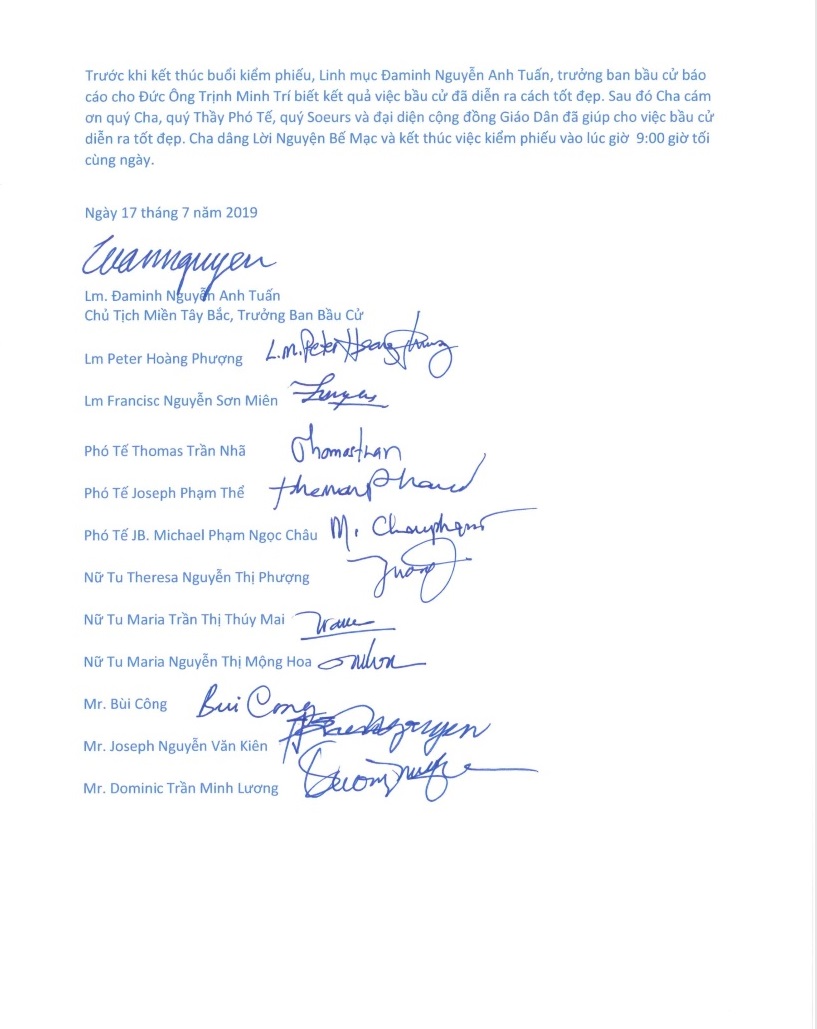 Trước khi kết thúc buổi kiểm phiếu, Linh mục Đaminh Nguyễn Anh Tuấn, trưởng ban bầu cử báo
cáo cho Đức Ông Trịnh Minh Trí biết kết quả việc bầu cử đã diễn ra cách tốt đẹp. Sau đó Cha cám
ơn quý Cha, quý Thầy Phó Tế, quý Soeurs và đại diện cộng đồng Giáo Dân đã giúp cho việc bầu cử
diễn ra tốt đẹp. Cha dâng Lời Nguyện Bế Mạc và kết thúc việc kiểm phiếu vào lúc giờ 9:00 giờ tối
cùng ngày.
Ngày 17 tháng 7 năm 2019
Lm. Đaminh Nguyễn Anh Tuấn
Chủ Tịch Miền Tây Bắc, Trưởng Ban Bầu Cử
Lm Peter Hoàng Phượng L.M. Peter
Lm Francisc Nguyễn Sơn Miên
Phó Tế Thomas Trần Nhã Thomas Tran
Phó Tế Joseph Phạm Thể
Phó Tế JB. Michael Phạm Ngọc Châu M. Chaupham
Nữ Tu Theresa Nguyễn Thị Phượng
Nữ Tu Maria Trần Thị Thúy Mai
Nữ Tu Maria Nguyễn Thị Mộng Hoa
Mr. Bùi Công Bui Cong
Mr. Joseph Nguyễn Văn Kiên
Mr. Dominic Trần Minh Lương